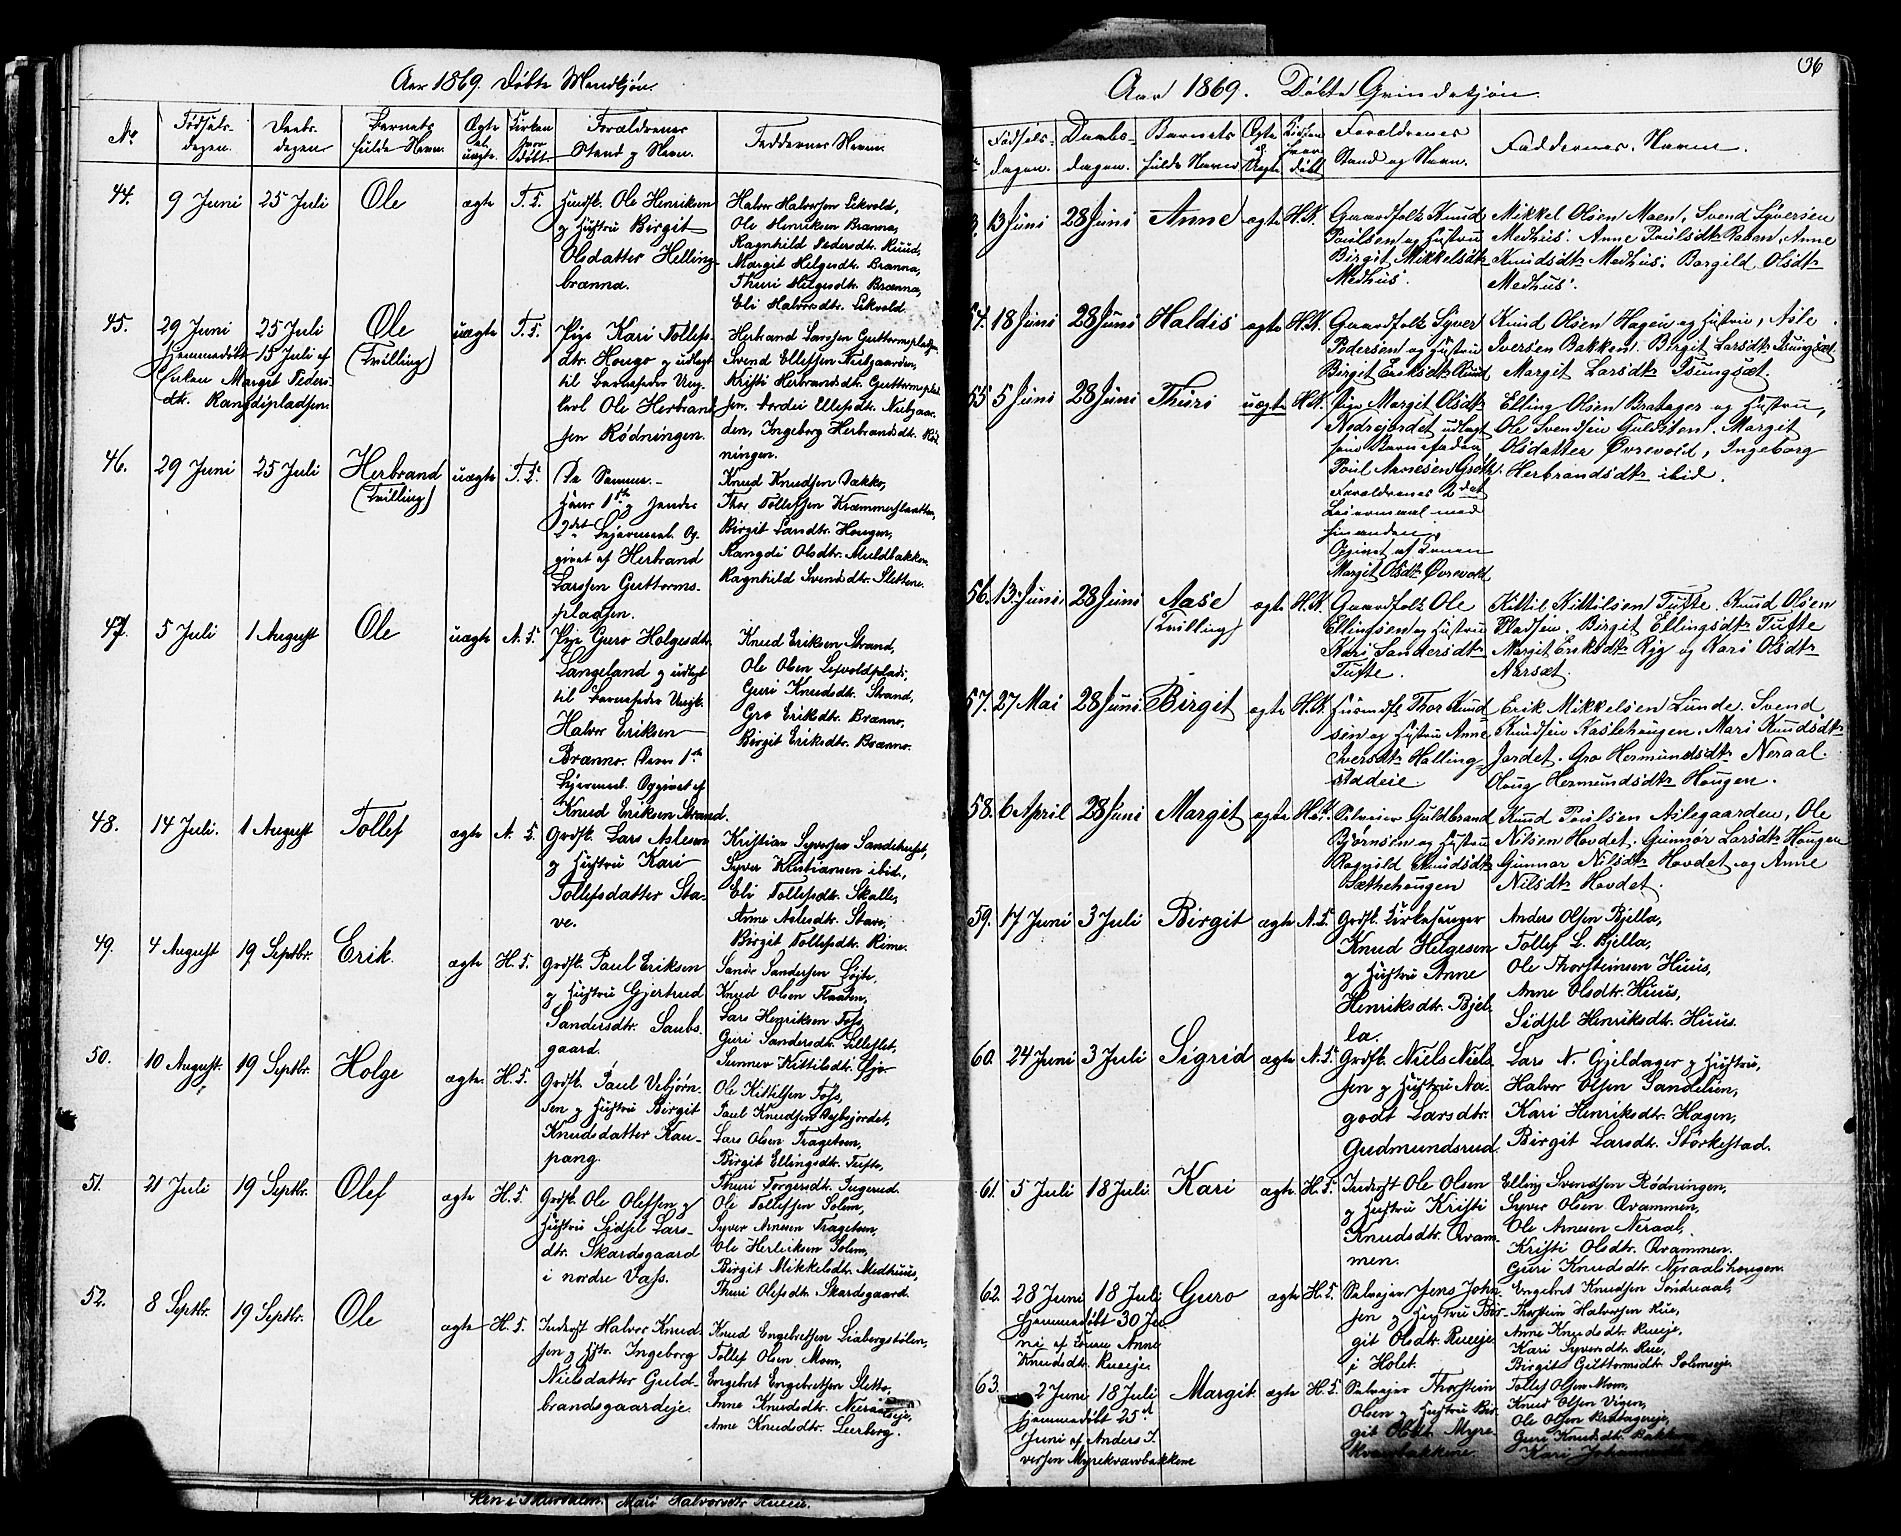 Aar 1869. Døbte Mandkjøn.
No
Fødsels-
dagen.
Daabs-
dagen
Barnets
fulde Navn.
Ægte
el.
uægte.
Kirken
hvor
døbt
Forældrenes
Stand og Navn.
Faddernes Navne.
44.
9 Juni
25 Juli
Ole
ægte
T. K.
Husfk. Ole Henriksen
og Hustru Birgit
Olsdatter Helling-
brænna.
Halvor Halvorsen Eikvold,
Ole Henriksen Brænna,
Ragnhild Pedersdtr. Ruud,
Margit Helgesdtr. Brænna,
Thuri Helgesdtr. Brænna,
Eli Halvorsdtr. Eikvold.
45.
29 Juni
25 Juli
Hjemmedøbt 15 Juli af
Enken Margit Peders-
dtr. Rangdipladsen.
Ole
(Tvilling)
uægte
T. K.
Pige Kari Tollefs-
dtr. Houge og udlagt
til Barnefader Ung-
karl Ole Herbrand-
sen Rødningen.
Herbrand Larssen Guttormsplads,
Svend Ellefsen Nubgaarden,
Kristi Herbrandsdtr. Guttormsplad-
sen. Ellefsdtr. Nubgaar-
den, Ingeborg Herbrandsdtr. Rød-
ningen.
46.
29 Juni
25 Juli
Herbrand
(Tvilling)
uægte
T. K.
De Samme.-
Hans 1ste og hendes
2det Lejermaal. Op-
givet af Herbrand
Larssen Guttorms-
pladsen.
Knud Knudsen Bakke,
Thor Tollefsen Kræmmerslaatten,
Birgit Larsdtr. Hougen,
Rangdi Olsdtr. Muldbakken,
Ragnhild Svendsdtr. Slettene.
47.
5 Juli
1 August
Ole
uægte
A. K.
Pige Guro Holgesdtr.
Langeland og udlagt
til Barnefader Ungk.
Halvor Eriksen
Brænno. Deres 1ste
Lejermaal. Opgivet af
Knud Eriksen Strand.
Knud Eriksen Strand,
Ole Olsen
Guri Knudsdtr. Strand,
Gro Eriksdtr. Brænno,
Birgit Eriksdtr. Brænno.
48.
14 Juli.
1 August
Tollef
ægte
A. K.
Grdfk. Lars Aslesen
og Hustru Kari
Tollefsdatter Sta-
ve.
Kristian Syversen Sandehuset,
Syver Kristiansen ibid.,
Eli Tollefsdtr. Skalle,
Anne Aslesdtr. Stave,
Birgit Tollefsdtr. Rime.
49.
4 August
19 Septbr.
Erik.
ægte
H. K.
Grdfk. Paul Eriksen
og Hustru Gjertrud
Sandersdtr. Saubs-
gaard.
Sander Sandersen Løjte,
Knud Olsen Flaaten,
Lars Henriksen Foss,
Guri Sandersdtr. Lilleslet,
Sunnev Kittilsdtr. Øjo
50.
10 August.
19 Septbr.
Holge
ægte.
H. K.
Grdfk. Paul Vebjørn-
sen og Hustru Birgit
Knudsdatter Kau-
pang.
Ole Kittilsen Foss,
Paul Knudsen Nybøjordet,
Lars Olsen Trageton,
Birgit Ellingsdtr. Tufte,
Thuri Torgersdtr. Tugerud.
51.
21 Juli
19 Septbr.
Olef
ægte
H. K.
Grdfk. Ole Olefsen og
Hustru Sidsel Lars-
dtr. Skardsgaard
i nordre Vats.
Ole Tollefsen Solem,
Syver Arnesen Trageton,
Ole Herleiksen Solem,
Birgit Mikkelsdtr. Medhuus,
Thuri Olefsdtr. Skardsgaard.
52.
8 Septbr.
19 Septbr.
Ole
ægte
H. K.
Inderst Halvor Knud-
sen og Hstr. Ingeborg
Nielsdatter Guld-
brandsgaardeje.
Knud Engebretsen Liabergstølen,
Tollef Olsen Moen,
Engebret Engebretsen Sletto,
Anne Knudsdtr. Neraaleje,
Anne Knudsdtr. Leerberg.
sen i Skurdalen. Mari Halvorsdtr.
Aar 1869. Døbte Qvindekjøn.
66
Fødsels-
dagen.
Daabs-
dagen.
Barnets
fulde Navn
Ægte
el.
Uægte
Kirken
hvor
døbt
Forældrenes
Stand og Navn.
Faddernes Navne.
3.
13 Juni
28 Juni
Anne
ægte
H.K.
Gaardfolk Knud
Poulsen og Hustru
Birgit Mikkelsdtr
Medhus.
Mikkel Olsen Moen, Svend Syversen
Medhus. Anne Poulsdtr Raaen, Anne
Knudsdtr Medhus. Bargild Olsdtr
Medhus.
54.
18 Juni
28 Juni
Haldis
ægte
H.K.
Gaardfolk Syver
Pedersen og Hustru
Birgit Eriksdtr Ruud
Knud Olsen Hagen og Hustru, Asle
Iversen Bakken. Birgit Larsdtr Tsungsæt
Margit Larsdtr Tsungsæt.
55
5 Juni
28 Juni
Thuri
uægte
H.K.
Pige Margit Olsdtr
Nedrejordet udlagt
som Barnefader
Poul Arnesen Grøth.
Forældrenes 2det
Leiermaal med
hinanden.
Opgivet af Konen
Margit Olsdtr Øvrevold
Elling Olsen Bratager og Hustru,
Ole Svendsen Guldsten. Margit
Olsdatter Øvrevold, Ingeborg
Herbrandsdtr ibid.
56.
13 Juni
28 Juni
Aase
(Tvilling)
ægte
H.K.
Gaardfolk Ole
Ellingsen og Hustru
Kari Sandersdtr
Tufte.
Kittil Kittilsen Tufte. Knud Olsen
Pladsen. Birgit Ellingsdtr Tufte
Margit Eriksdtr Ryg og Kari Olsdtr
Aarsæt.
57.
27 Mai
28 Juni
Birgit
ægte
H.K.
Husmdf Thor Knud-
sen og Hstru Anne
Iversdtr Halling-
stadeie.
Erik Mikkelsen Lunde. Svend
Knudsen Kaslehougen. Mari Knudsdtr
Jordet. Gro Hermundsdtr Neraal.
Oloug Hermundsdtr Hougen.
58.
6 April
28 Juni
Margit
ægte
H.K.
Selveier Guldbrand
Bjørnsen og Hustru
Ragnild Knudsdtr
Sæthehougen
Knud Poulsen Aslegaarden, Ole
Nilsen Hovdet. Gunnor Larsdtr Hougen
Gunnor Nilsdtr Hovdet og Anne
Nilsdtr Hovdet.
59.
17 Juni
3 Juli
Birgit
ægte
A. K.
Grdfk. Kirkesanger
Knud Helgesen
og Hustru Anne
Henriksdtr. Bjel-
la.
Anders Olsen Bjella,
Tollef L. Bjella,
Ole Thorsteinsen Huus,
Anne Olsdtr. Huus,
Sidsel Henriksdtr. Huus.
60.
24 Juni
3 Juli
Sigrid
ægte
A. K.
Grdfk. Niels Niels-
sen og Hustru Aa-
godt Larsdtr.
Gudmundsrud.
Lars N. Gjeldager og Hustru,
Halvor Olsen Sandelien,
Kari Henriksdtr. Hagen,
Birgit Larsdtr. Størkestad.
61.
5 Juli
18 Juli
Kari
ægte
H. K.
Inderst Ole Olsen
og Hustru Kristi
Knudsdtr. Qvam-
men.
Elling Svendsen Rødningen,
Syver Olsen Qvammen,
Ole Arnesen Neraal,
Kristi Olsdtr. Qvammen.
Guri Knudsdtr. Neraalshougen.
62.
28 Juni
18 Juli
Hjemmedøbt 30 Ju-
ni af Konen Anne
Knudsdtr. Rueeje.
Guro
ægte
H. K.
Selvejer Jens John-
sen og Hustru Bir-
git Olsdtr. Rueeje
i Holet.
Engebret Knudsen Søndreaal,
Thorstein Halvorsen Rue,
Anne Knudsdtr. Rueeje,
Kari Syversdtr. Rue,
Birgit Guttormsdtr. Solemseje.
63.
2 Juni
18 Juli
Hjemmedøbt 25de
Juni af Anders I-
versen Myrekvarnbakkene
Margit.
ægte
H. K.
Selvejer Thorstein
Olsen og Hustru Bir-
git Olsdtr Myre-
kvarnbakkene.
Tollef Olsen Moen,
Knud Olsen Vigen,
Ole Olsen Bratagereje,
Guri Knudsdtr. Bakken
Kari